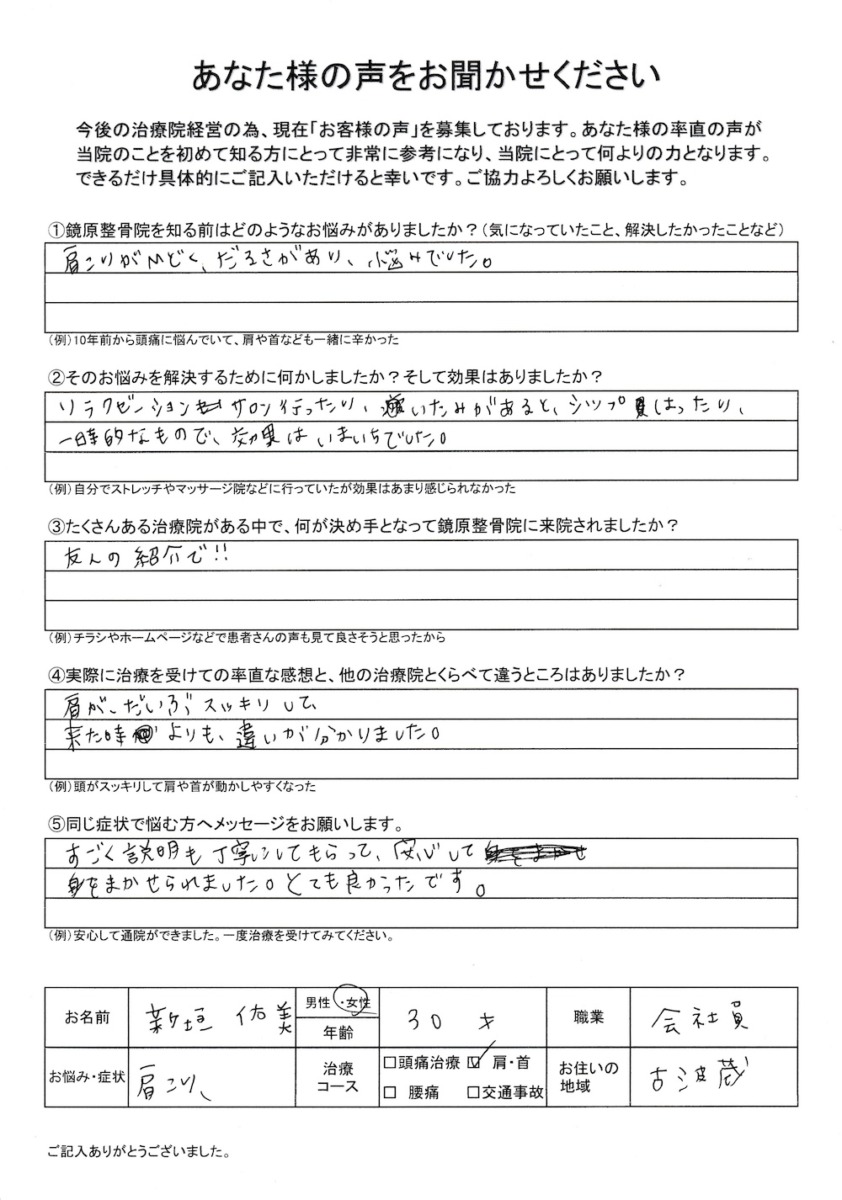 あなた様の声をお聞かせください
今後の治療院経営の為、現在「お客様の声」を募集しております。あなた様の率直の声が
当院のことを初めて知る方にとって非常に参考になり、当院にとって何よりの力となります。
できるだけ具体的にご記入いただけると幸いです。ご協力よろしくお願いします。
①鏡原整骨院を知る前はどのようなお悩みがありましたか？（気になっていたこと、解決したかったことなど）
肩こりがひどく、だるさがあり、悩みでした。
（例）10年前から頭痛に悩んでいて、肩や首なども一緒に辛かった
②そのお悩みを解決するために何かしましたか？そして効果はありましたか？
リラクゼーションサロン行ったり、いたみがあると、シップはったり、
一時的なもので、効果はいまいちでした。
（例）自分でストレッチやマッサージ院などに行っていたが効果はあまり感じられなかった
③たくさんある治療院がある中で、何が決め手となって鏡原整骨院に来院されましたか？
友人の紹介で!!
（例）チラシやホームページなどで患者さんの声も見て良さそうと思ったから
④実際に治療を受けての率直な感想と、他の治療院とくらべて違うところはありましたか？
肩が、だいぶスッキリして、
来た時よりも、違いが分かりました。
（例）頭がスッキリして肩や首が動かしやすくなった
⑤同じ症状で悩む方へメッセージをお願いします。
すごく説明も丁寧にしてもらって、安心して
身をまかせられました。とても良かったです。
（例）安心して通院ができました。一度治療を受けてみてください。
お名前 新垣 佑美 男性・女性 年齢 30才 職業 会社員
お悩み・症状 肩こり、 治療コース □頭痛治療 ☑肩・首 □腰痛 □交通事故 お住いの地域 古波蔵
ご記入ありがとうございました。